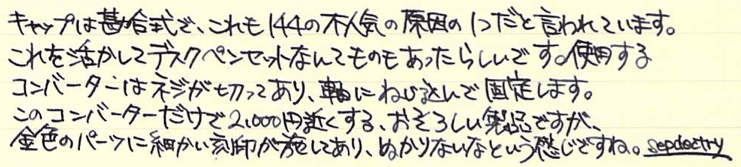 キャップは勘合式で、これも144の不人気の原因の1つだと言われています。
これを活かしてデスクペンセットなんてものもあったらしいです。使用する
コンバーターはネジが切ってあり、軸にねじ込んで固定します。
このコンバーターだけで2,000円近くする、おそろしい製品ですが、
金色のパーツに細かい刻印が施してあり、ぬかりないなという感じですね。